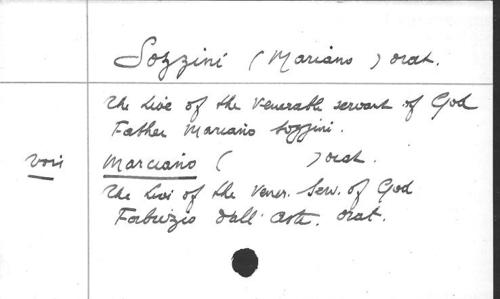 Sozzini (Mariano) orat.
The live of the Venerable servant of God
Father Mariano Sozzini.
voir Marciano ( ) orat.
The live of the Vener. Serv. of God
Fabrizio dall' Aste. orat.